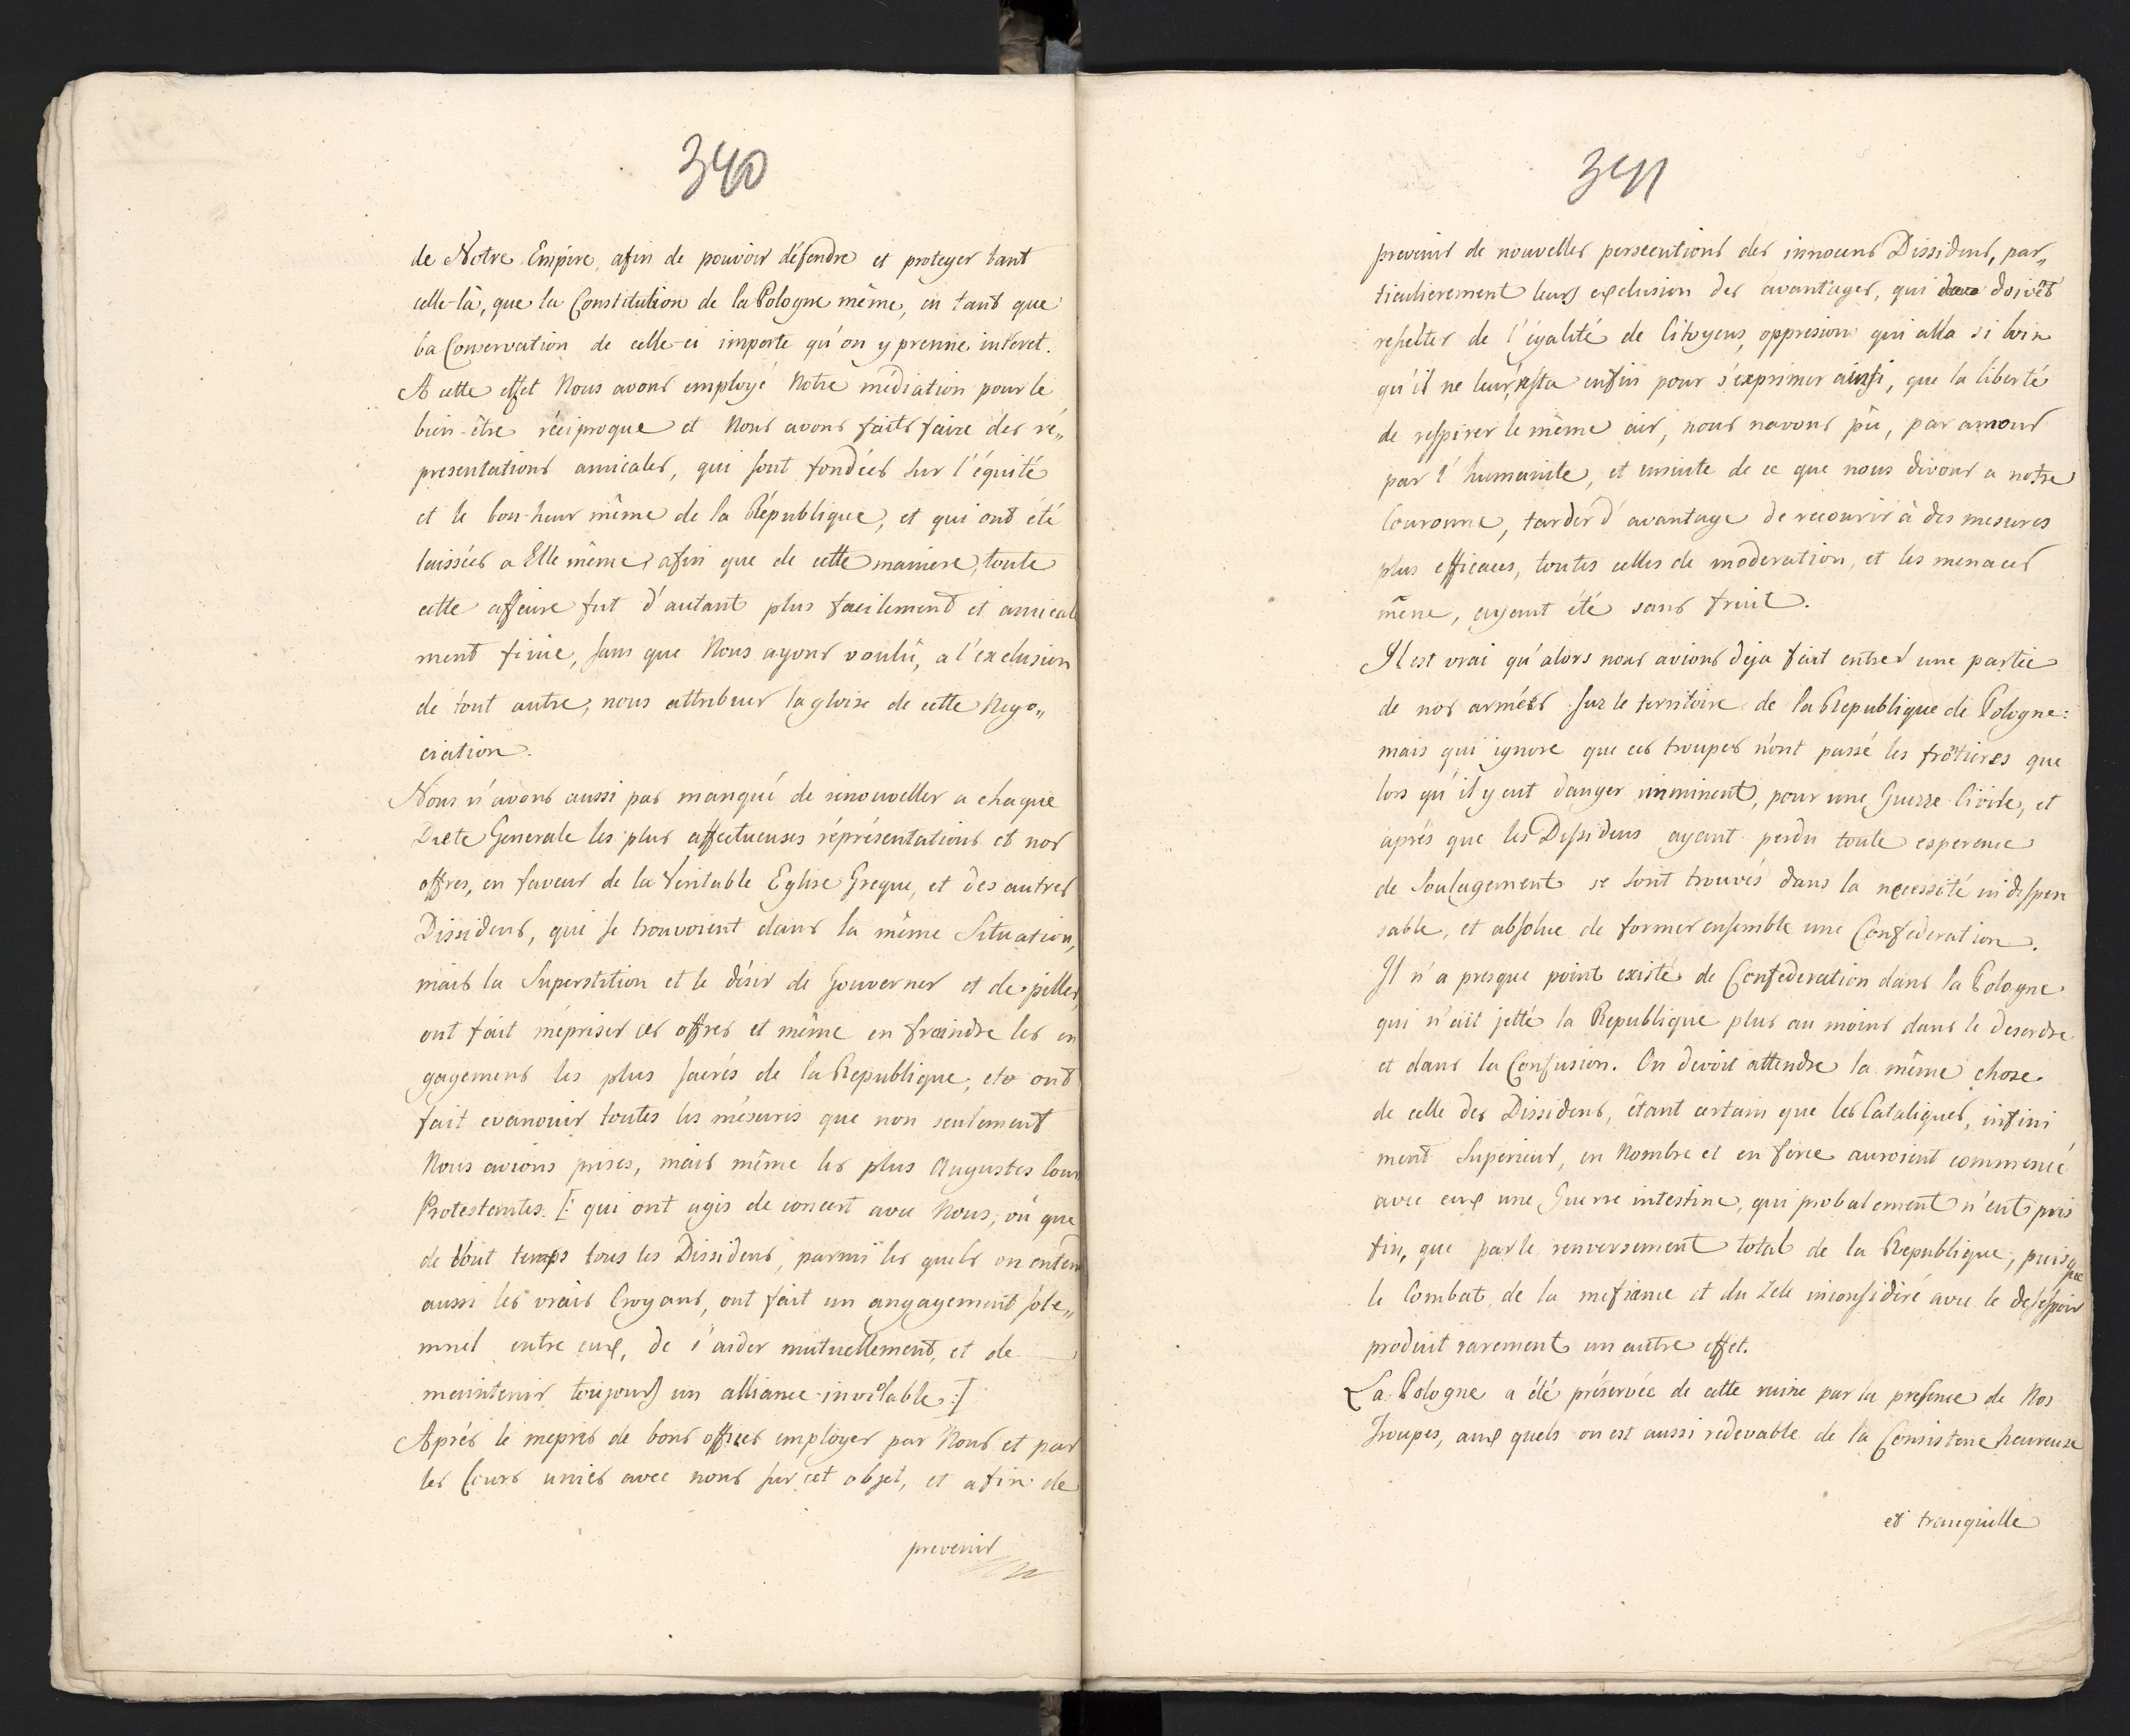 340
de Notre Empire, afin de pouvoir défendre et proteger tant
celle-là, que la Constitution de la Pologne même, en tant que
la Conservation de celle-ci importe qu'on y prenne interet.
A cette effet Nous avons employé Notre médiation pour le
bien-être réciproque et Nous avons faits faire des ré„
presentations amicales, qui sont fondées sur l'équité
et le bon-heur même de la République, et qui ont été
laissées a Elle même, afin que de cette maniere, toute
cette affaire fut d'autant plus facilement et amicale
ment finie, sans que Nous ayons voulû, a l'exclusion
de tout autre, nous attribuer la gloire de cette Nego„
ciation.
Nous n'avons aussi pas manqué de renouveller a chaque
Diete Generale les plus affectueuses réprésentations et nos
offres, en faveur de la Veritable Eglise Greque, et des autres
Dissidens, qui se trouvoient dans la même Situation,
mais la Superstition et le désir de Gouverner et de piller,
ont fait mépriser ces offres et même en fraindre les en
gagemens les plus sacrés de la Republique, et ont
fait evanouir toutes les mésures que non seulement
Nous avions prises, mais même les plus Augustes Cours
Protestantes. [: qui ont agis de concert avec Nous, où que
de tout temps tous les Dissidens, parmi les quels on enten
aussi les vrais Croyans, ont fait un angagement sole„
mnel entre eux, de s'aider mutuellement, et de
maintenir toujours un alliance inviolable :]
Aprés le mepris de bons offices employer par Nous et par
les Cours unies avec nous sur cet objet, et afin de
prevenir
341
prevenir de nouvelles persecutions des innocens Dissidens, par„
ticulierement leurs exclusion des avantages, qui doivēt
resulter de l'égalité de Citoyens, oppresion qui alla si loin
qu'il ne leur resta enfin pour s'exprimer ainsi, que la liberté
de respirer le même air, nous navons pû, par amour
par l'humanite, et ensuite de ce que nous divons a notre
Couronne, tarder d'avantage de recourir à des mesures
plus efficaces, toutes celles de moderation, et les menaces
même, ayant été sans fruit.
Il est vrai qu'alors nous avions deja fait entrer une partie
de nos armées sur le territoire de la Republique de Pologne:
mais qui ignore que ces troupes n'ont passé les frōtieres que
lors qu'il y eut danger imminent, pour une Guerre Civile, et
aprés que les Dissidens ayant perdu toute esperence
de Soulagement se sont trouvés dans la necessité indispen
sable, et absolue de former ensemble une Confederation.
Il n'a presque point existé de Confederation dans la Pologne
qui n'ait jetté la Republique plus au moins dans le desordre
et dans la Confusion. On devoit attendre la même chose
de celle des Dissidens, étant certain que les Cataliques, infini
ment Superieur, en Nombre et en force auroient commencé
avec eux une Guerre intestine, qui probalement n'eut pris
fin, que par le renversement total de la Republique, puisque
le Combat, de la mefiance et du Zele inconsidéré avec le desespoir
produit rarement un autre effet.
La Pologne a été préservée de cette ruine par la presence de Nos
Troupes, aux quels on est aussi redevable de la Consistence heureuse
et tranquille